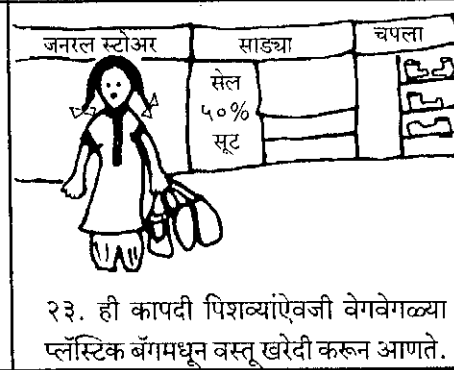 जनरल स्टोअर
साड्या
चपला
सेल
५०%
सूट
२३. ही कापदी पिशव्यांऐवजी वेगवेगळ्या
प्लॅस्टिक बॅगमधून वस्तू खरेदी करून आणते.